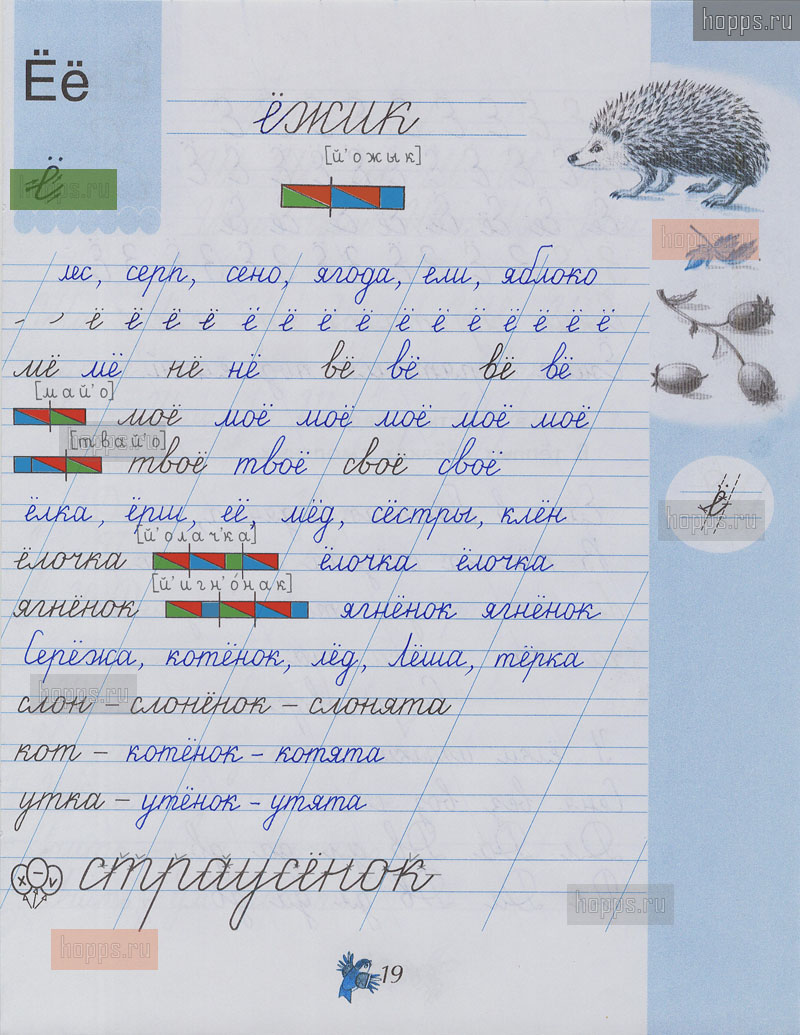 hopps.ru
Ёё
ёжик
[й'ожык]
ё
hopps.ru
hopps.ru
лес, серп, сено, ягода, ели, яблоко
ё ё ё ё ё ё ё ё ё ё ё ё ё ё
мё мё нё нё вё вё вё вё
[май'о]
моё моё моё моё моё моё
[твай'о]
твоё твоё своё своё
ёлка, ёрш, её, мёд, сёстры, клён
ё
hopps.ru
[й'олач'ка]
ёлочка ёлочка ёлочка
[й'игн'о́нак]
ягнёнок ягнёнок ягнёнок
Серёжа, котёнок, лёд, Лёша, тёрка
hopps.ru
слон – слонёнок – слонята
кот – котёнок – котята
утка – утёнок – утята
х – v
страусёнок
hopps.ru
hopps.ru
19